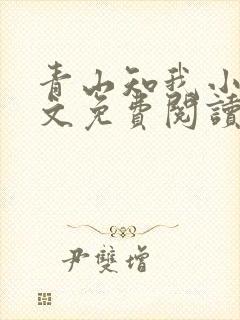 青山知我小
文免費閱讀
尹雙增